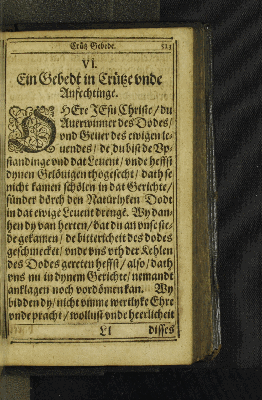 Crütz Gebede. 513
VI.
Ein Gebedt in Crütze vnde
Anfechtinge.
O HEre JEsu Christe / du
Auerwinner des Dodes /
vnd Geuer des ewigen le-
uendes / de du bist de Vp-
standinge vnd dat Leuent / vnde heffst
dynen Gelöuigen thogesecht / dath se
nicht kamen schölen in dat Gerichte /
sünder dörch den Natürlyken Dodt
in dat ewige Leuent drenge. Wy dan-
cken dy van herten / dat du an vnse ste-
de gekamen / de bittericheit des dodes
geschmecket / vnde vns vth der Kehlen
des Dodes gereten heffst / also / dath
vns nu in dynem Gerichte / nemandt
anklagen noch vordömen kan. Wy
bidden dy / nicht vmme werltlyke Ehre
vnde pracht / wollust vnde heerlicheit
Ll disses